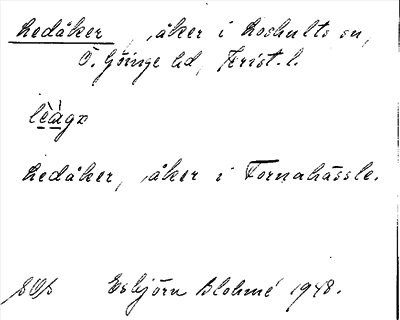 Ledåker, åker i Loshults sn,
Ö. Göinge hd, Krist. l.
Ledåker, åker i Tornahässle.
Esbjörn Blohmé 1948.